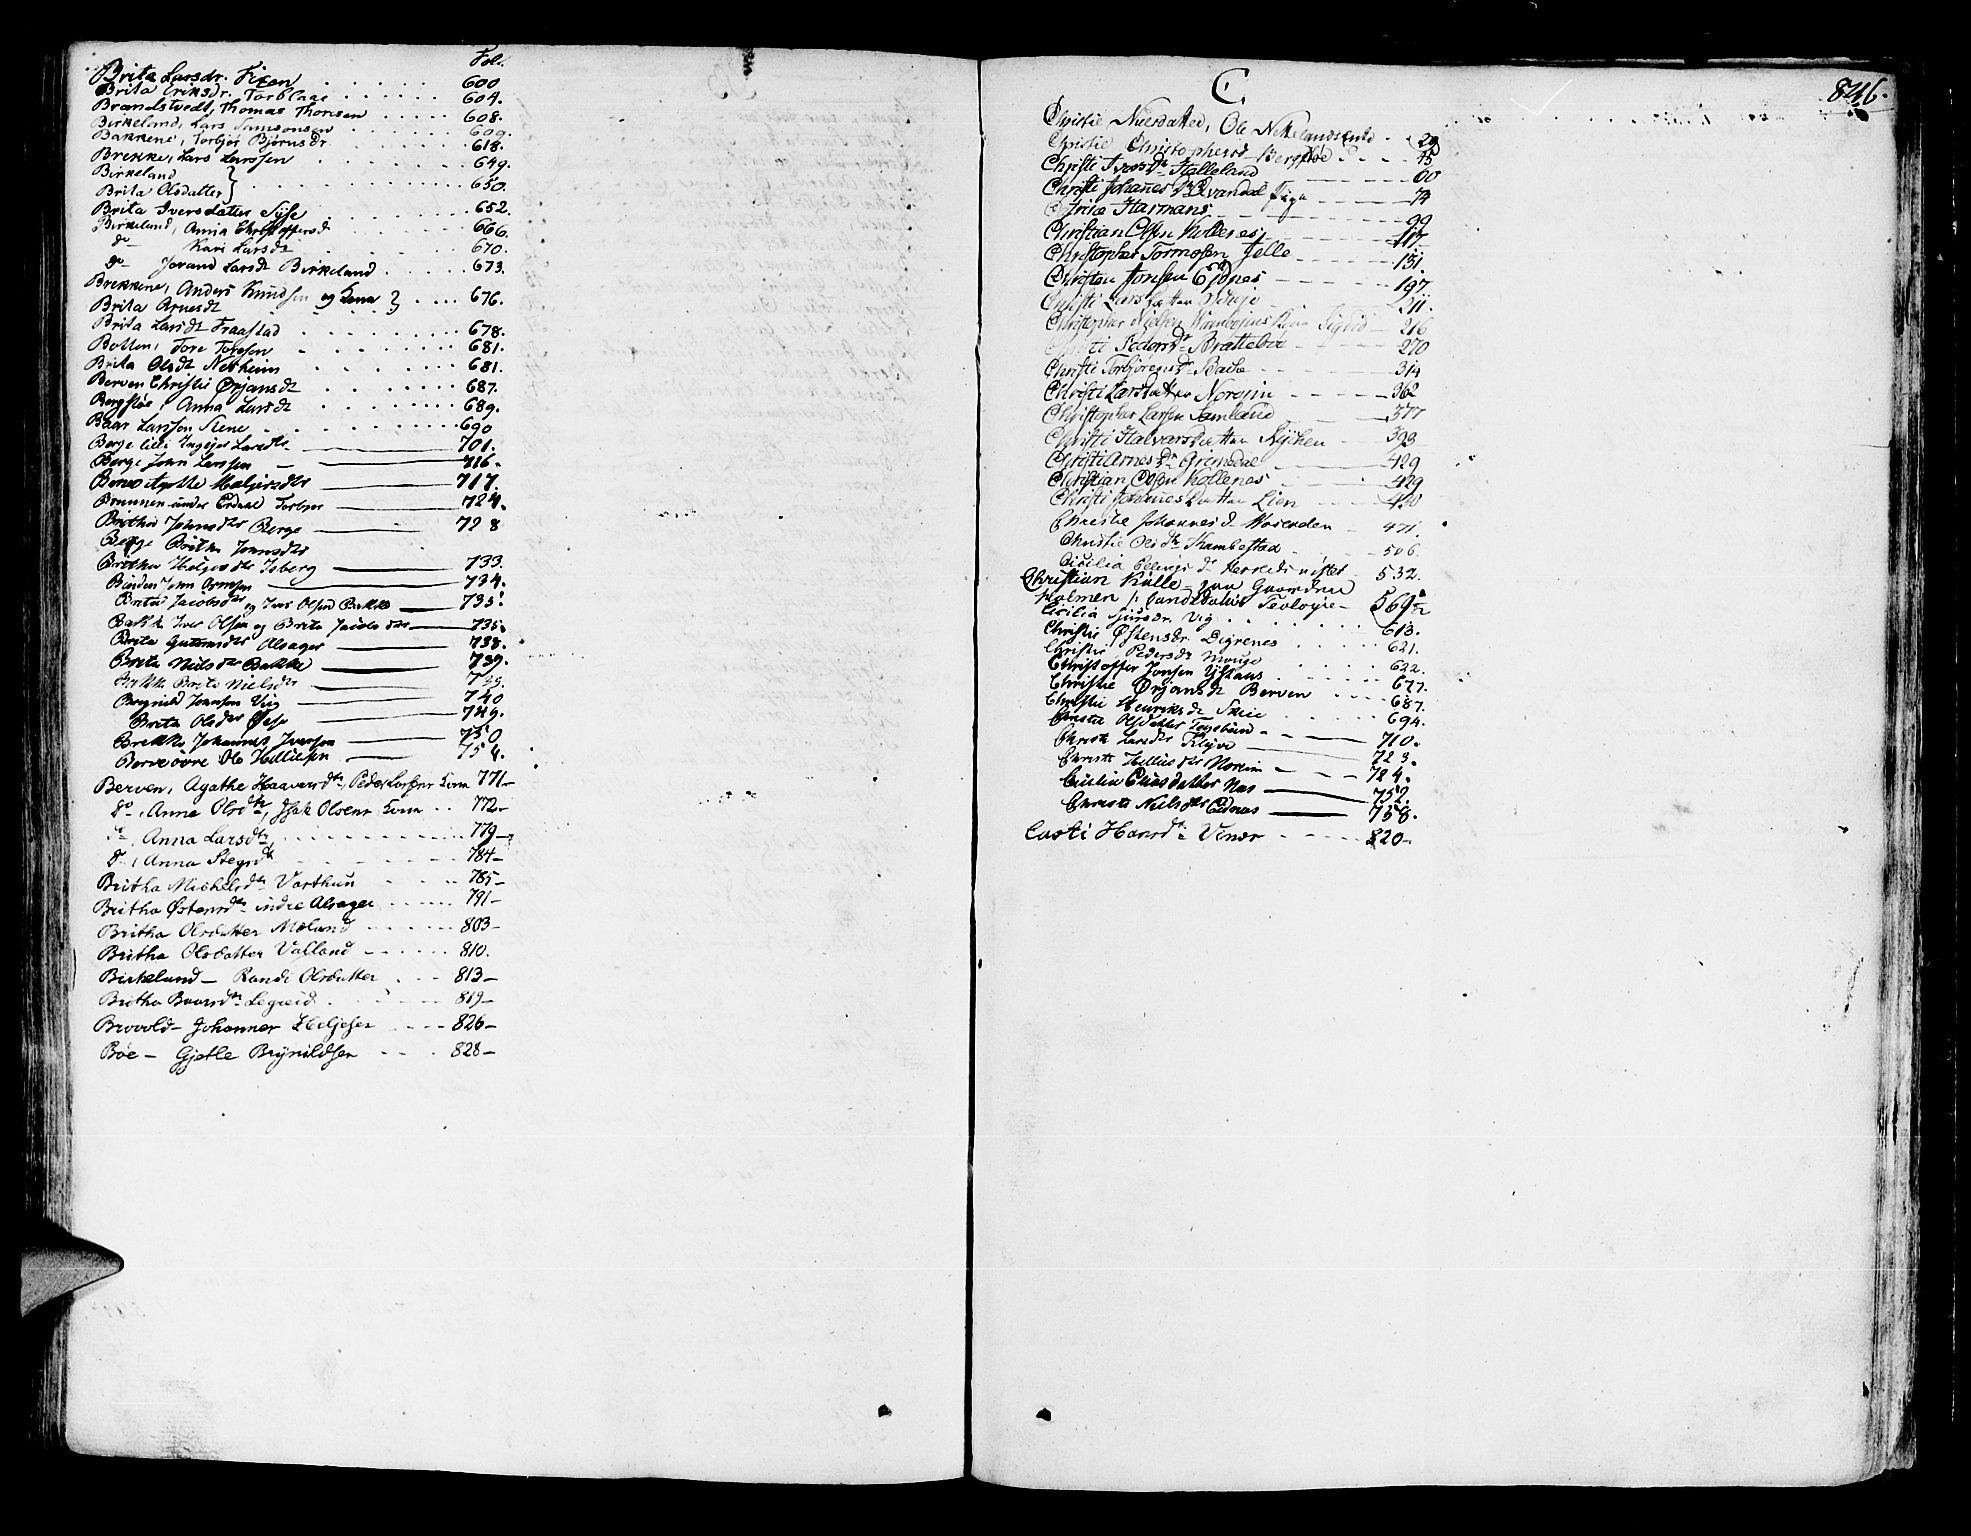 Fol.
Brita Larsdr. Fixen 600
Brita Eriksdr. Torblaae 604.
Brandstvedt, Thomas Thomsen 608.
Birkeland, Lars Samsonsen 609.
Bakkene, Torbjør Bjørnsdr 618.
Brekke, Lars Larssen 649.
Birkeland
Brita Olsdatter } 650.
Brita Iversdatter Syse 652.
Birkeland, Anna Christoffersd 666.
do Kari Larsdt 670.
do Jorand Larsdt Birkeland 673.
Brekkene, Anders Knudsen og Kona } 676.
Brita Arnesdt
Brita Larsdt Fraastad 678.
Botten, Tore Toresen 681.
Brita Olsdt Nesheim 681.
Berven Christi Ørjansdt 687.
Bergstøe, Anna Larsdt 689.
Baar Larsson 690
Berge lille Ingejer Larsdtr 701.
Berge John Larssen 716.
Berve Agathe Helgesdtr 717.
Brunnen under Erdahl Torbjør 724.
Britha Johnsdtr Berge 728
Berge Britha Johnsdtr
Britha Helgesdtr Isberg 733.
Børn Ormsen 734.
Britha Jacobsdtr og Iver Olsen Bakke 735.
Bakke Iver Olsen og Brita Jacobsdtr 735.
Brita Guttormsdtr Alsager 738.
Brita Nielsdtr Bakke 739.
Bakke Brite Nielsdtr 739.
Brynild Johnson Vig 740
Brita Olsdtr 749.
Brekke Johannes Iversen 750
Berve øvre Ole 754.
Berven, Agathe Haavarsdtr, Peder Larsens Kone 771-
do, Anna Olsdtr, Isak Olsens Kone 772-
do, Anna Larsdtr 779-
do, Anna Stegsdtr 784-
Britha Michelsdtr Varthun 785-
Britha Østensdtr indre Alsager 791-
Britha Olsdatter Mæland 803-
Britha Olsdatter Valland 810.
Birkeland- Randi Olsdatter 813-
Britha Baarsdtr Legreid 819-
Brovold- Johannes Heljesen 826-
Bøe- Gjetle Brynildsen 828-
C.
846.
Christie Nielsdatter, Ole 29
Christie Christophersd Bergstøe 45
Christi Iversdtr Halleland 60
Christi Johanesdtr Qvandal Pige 74
Hartmans 99
Christian Olsen Kollenes 117
Christopher Tormosen Jelle 151.
Christen Jonsen Eydnes 197
Christi Larsdatter 211.
Christopher Nielsen Kone Sigrid 216
Christi Pedersdr Brattebøe 270
Christi Torbjørnsdr Bache 314
Christi Larsdatter Norem 362
Christopher Larsen Samland 377
Christi Halvarsdatter Nyken 393
Christi Arnesdr Grimsdal 429
Christian Olsen Kollenes 429
Christi Johannesdatter Lien 450
Christie Johannesd 471.
Christie Olsdtr Kambestad 506.
Cicilia Ellingsdr 532.
Christian Kølle - paa Gaarden
Holmen, Candidatus Teologie- 569½
Cicilia Sjursdr. Vig 613.
Christie Østensdr. Digrenes 621.
Christie Pedersdr Mauge 622.
Christoffer Jonsen Ystaas 677.
Christie Ørjansdt Berven 687.
Christie Henriksdt Skeie 694.
Christi Olsdatter 710.
Christi Larsdtr 723.
Christi Helliesdtr Norem 784.
Cicilia Olsdatter Næs 752.
Christi Nielsdtr Eidnæs 758.
Casti Hansdtr Vinæs 820-